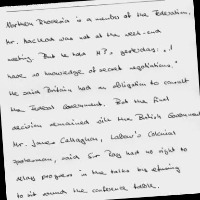 Northern Rhodesia is a member of the Federation.
Mr. Macleod was not at the week-end
meeting. But he told M.P.s yesterday: "I
have no knowledge of secret negotiations."
He said Britain had an obligation to consult
the Federal Government. But the final
decision remained with the British Government.
Mr. James Callaghan, Labour's Colonial
spokesman, said Sir Roy had no right to
delay progress in the talks by refusing
to sit round the conference table.